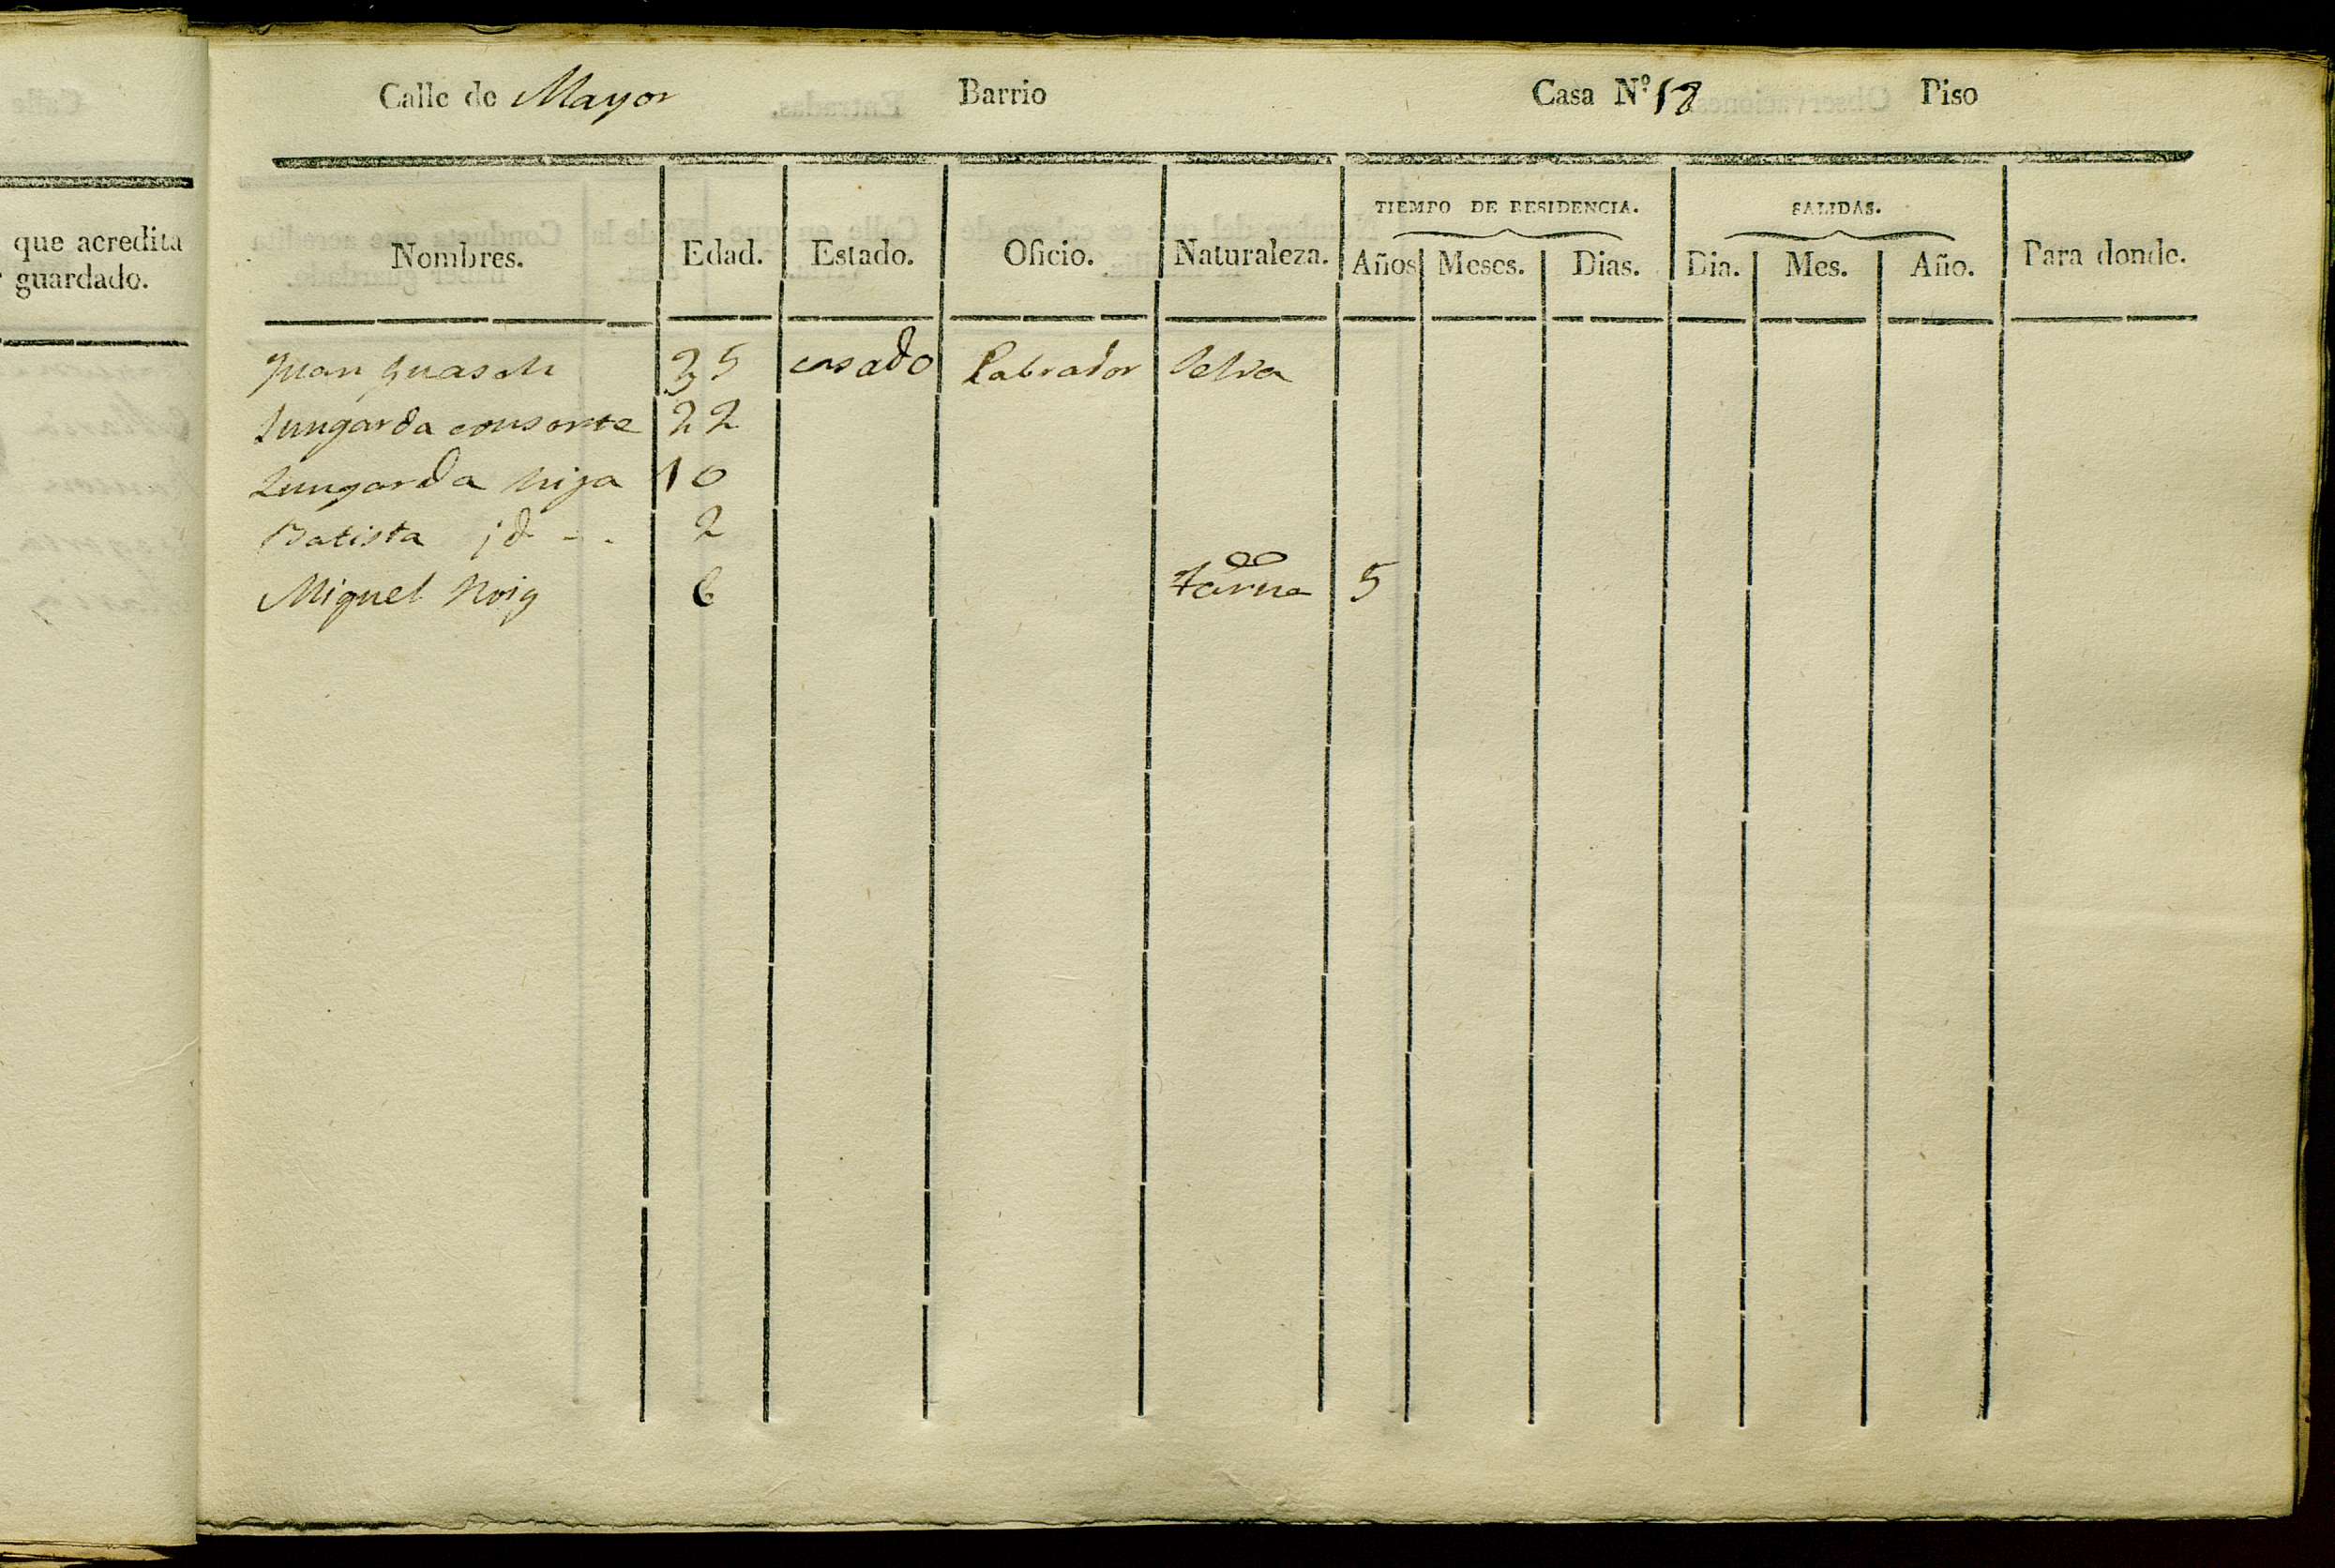 que acredita
guardado.
Calle de Mayor Barrio Casa Nº 18 Piso
TIEMPO DE RESIDENCIA. SALIDAS.
Nombres. Edad. Estado. Oficio. Naturaleza. Años Meses. Dias. Dia. Mes. Año. Para donde.
Juan Guasch 35 casado Labrador Selva
Lungarda consorte 22
Lungarda hija 10
Batista id - . 2
Miguel Roig 6 Tarna 5